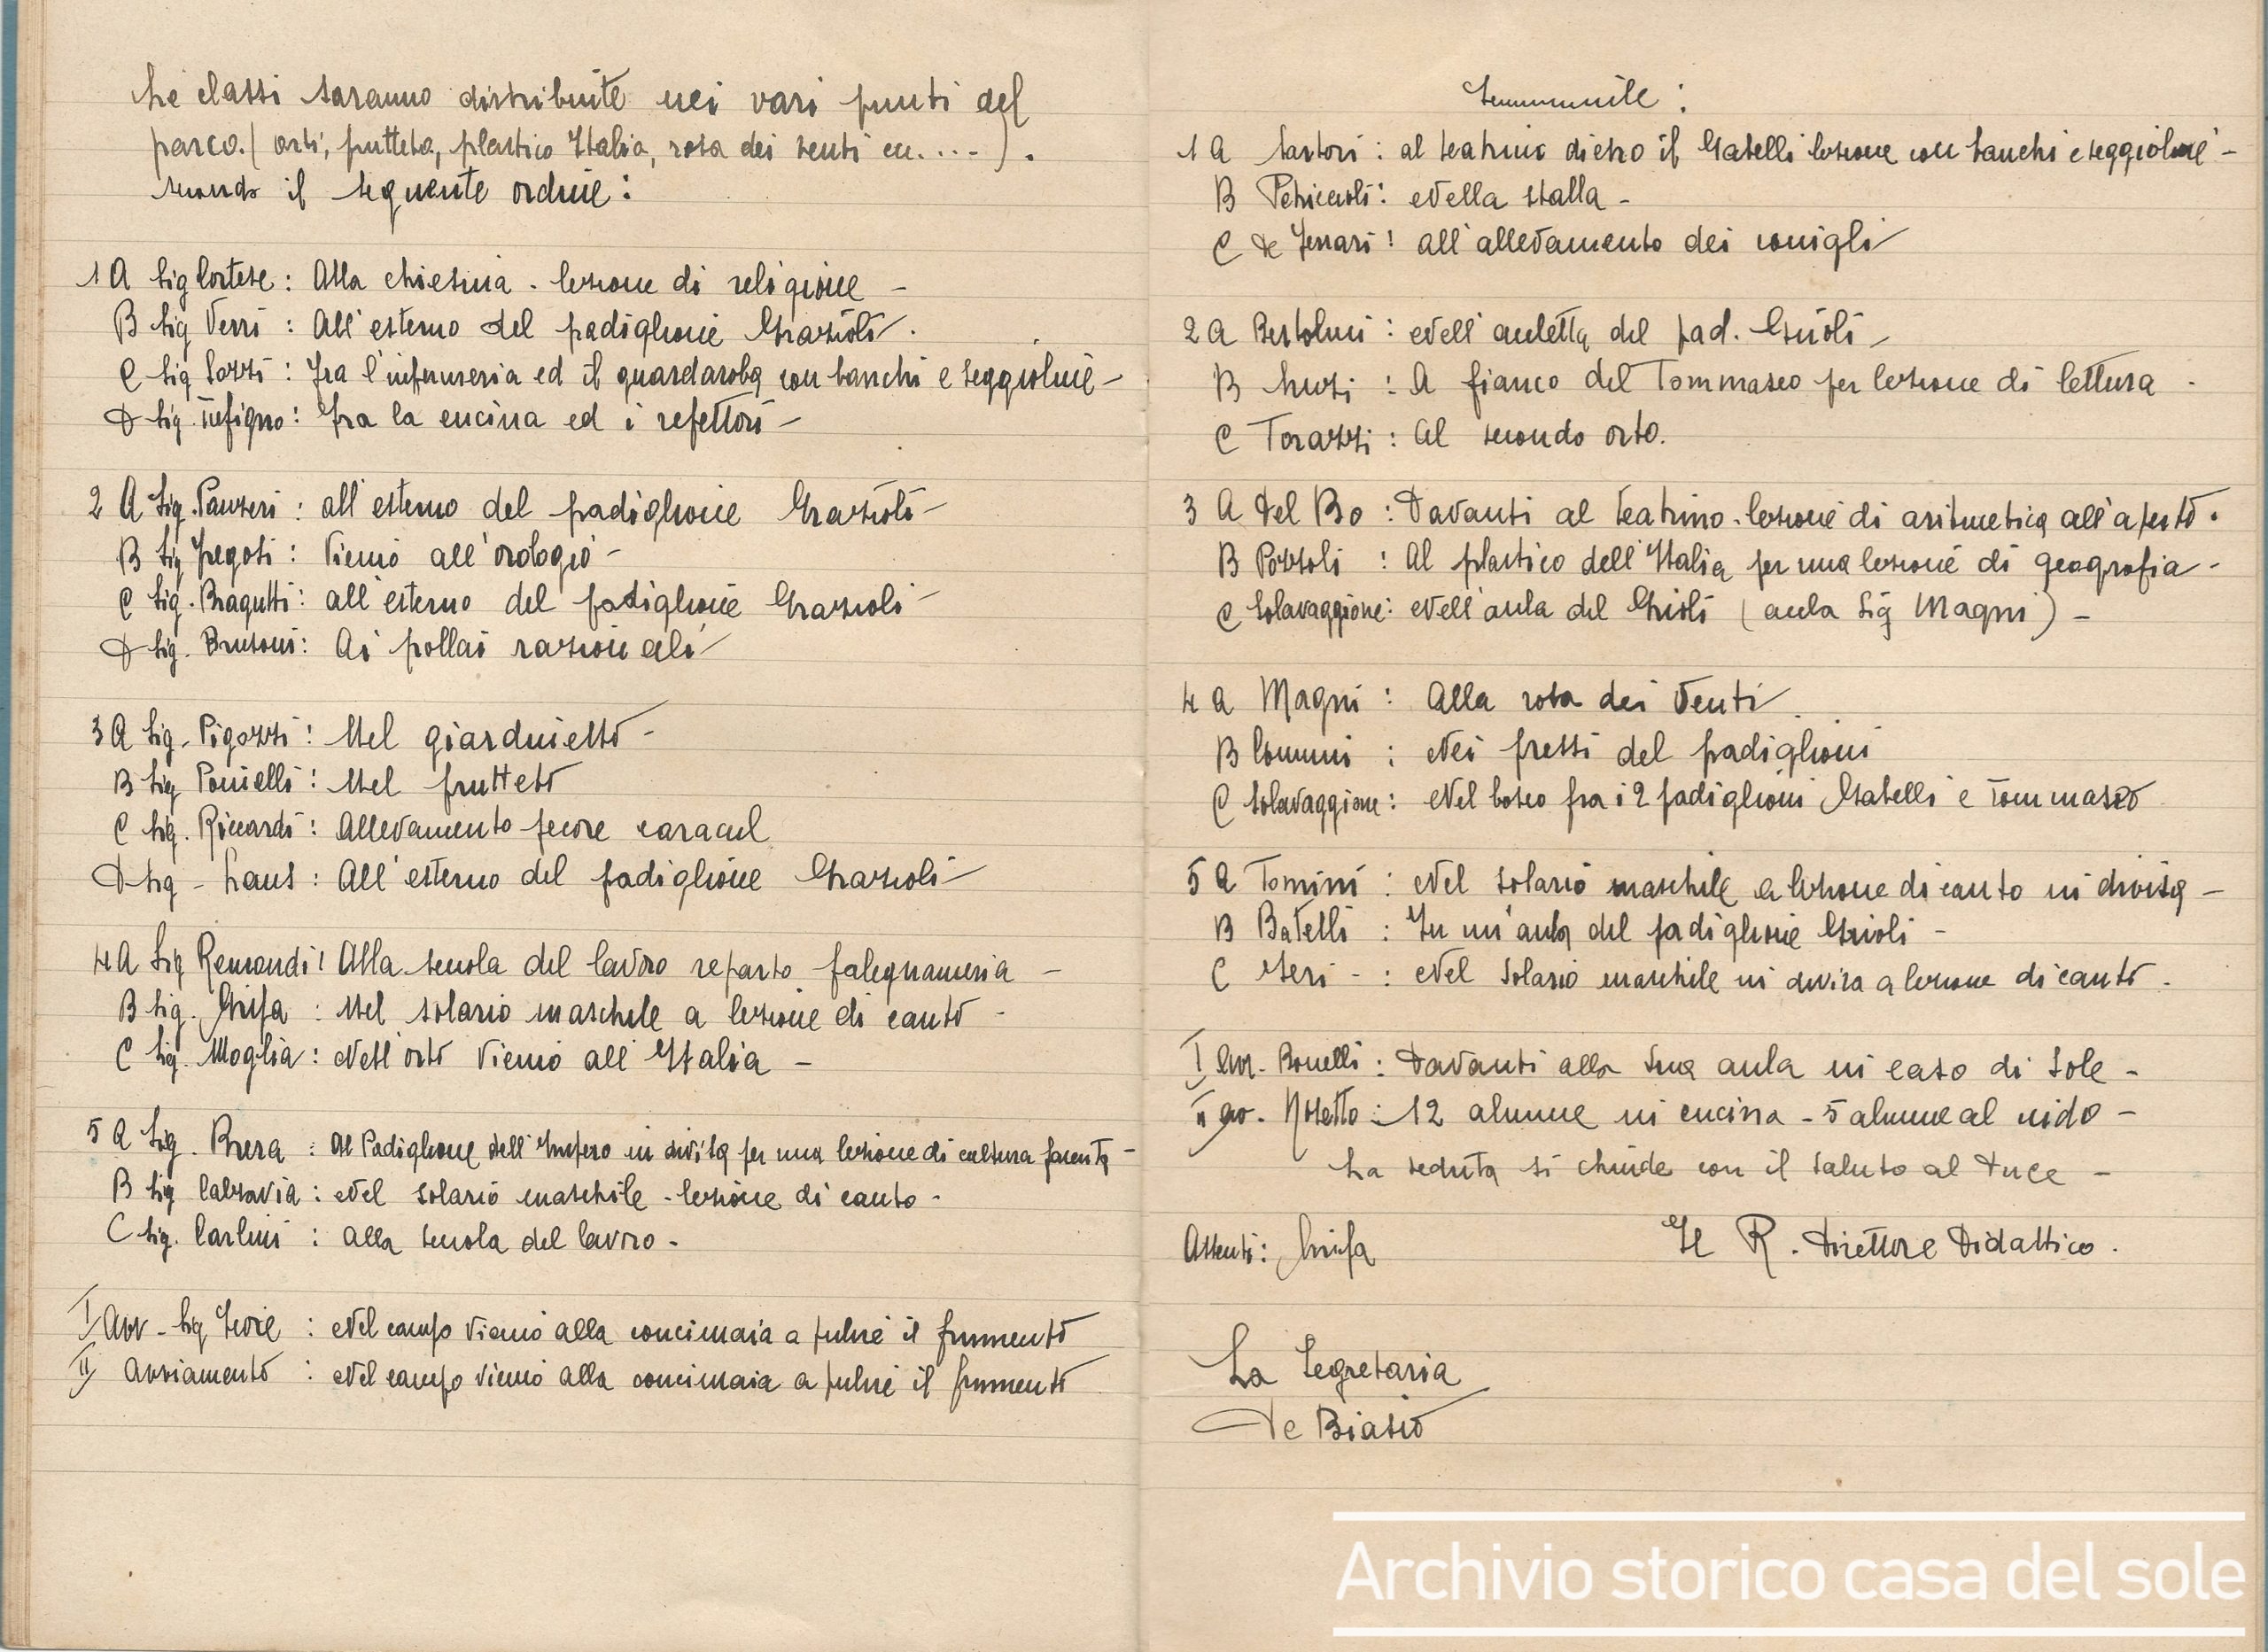 Le classi saranno distribuite nei vari punti del
parco. (orti, frutteto, plastico Italia, rosa dei venti ecc....).
secondo il seguente ordine:
1 A Sig Cortese: Alla chiesina - lezione di religione -
B Sig Verri: All'esterno del padiglione Grazioli.
C Sig Sozzi: Fra l'infermeria ed il guardaroba con banchi e seggioline -
D Sig. Tefigno: fra la cucina ed i refettori -
2 A Sig. Panzeri: all'esterno del padiglione Grazioli -
B Sig Fregoti: Vicino all'orologio -
C Sig. Bragutti: all'esterno del padiglione Grazioli -
D Sig. Brusoni: Ai pollai razionali
3 A Sig. Pigozzi: Nel giardinetto -
B Sig Ponielli: Nel frutteto
C Sig. Riccardi: Allevamento pecore caracul
D Sig - Laus: All'esterno del padiglione Grazioli -
4 A Sig Remondi: Alla scuola del lavoro reparto falegnameria -
B Sig. Grifa: Nel solario maschile a lezione di canto -
C Sig. Moglia: Nell'orto vicino all'Italia -
5 A Sig. Brera: Al Padiglione dell'Impero in divisa per una lezione di cultura fascista -
B Sig Calzavia: Nel solario maschile - lezione di canto -
C Sig. Carlini: alla scuola del lavoro -
I Avv - Sig: Nel campo vicino alla concimaia a pulire il frumento
II Avviamento: Nel campo vicino alla concimaia a pulire il frumento
Femminile:
1 A Sartori: al teatrino dietro il Gabelli lezione con banchi e seggioline -
B Petriccioli: Nella stalla -
C De Ferrari: all'allevamento dei conigli
2 A Bertolini: Nell'auletta del pad. Grioli -
B Luzi: A fianco del Tommaseo per lezione di lettura -
C Torazzi: Al secondo orto.
3 A Del Bo: Davanti al teatrino - lezione di aritmetica all'aperto.
B Pozzoli: Al plastico dell'Italia per una lezione di geografia -
C Solavaggione: Nell'aula del Grioli (aula Sig Magni) -
4 A Magni: Alla rosa dei Venti
B Commi: Nei pressi del padiglioni
C Solavaggione: Nel bosco fra i 2 padiglioni Gabelli e Tommaseo
5 A Tomini: Nel solario maschile a lezione di canto in divisa -
B Batelli: In un'aula del padiglione Grioli -
C Neri -: Nel solario maschile in divisa a lezione di canto -
I Avv. Bonelli: Davanti alla sua aula in caso di sole -
II avv. Nosetto: 12 alunne in cucina - 5 alunne al nido -
La seduta si chiude con il saluto al Duce -
Assenti: Grifa
Il R. Direttore Didattico.
La Segretaria
De Biasio
Archivio storico casa del sole